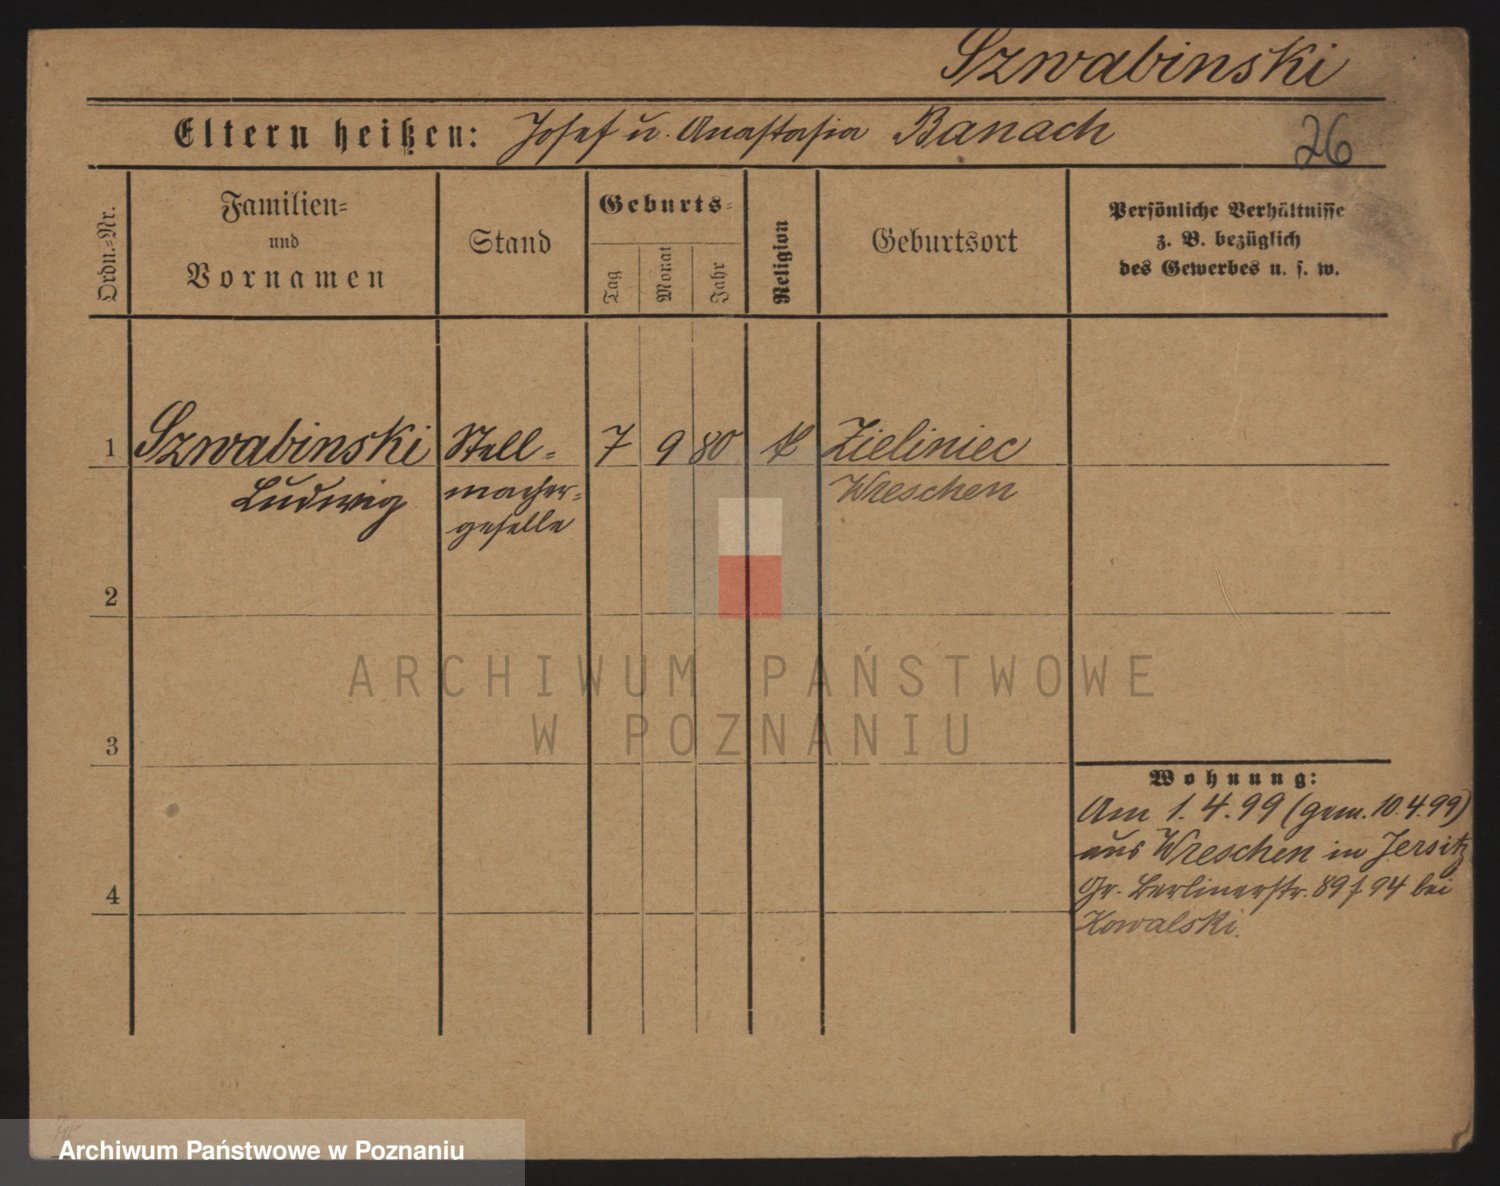 Szwabinski
Eltern heißen: Josef u. Anastasia Banach
26
Ordn.=Nr.
Familien=
und
Vornamen
Stand
Geburts=
Tag
Monat
Jahr
Religion
Geburtsort
Persönliche Verhältnisse
z. B. bezüglich
des Gewerbes u. s. w.
1 Szwabinski Stell= 7 9 80 k Zieliniec
Ludwig macher= Wreschen
geselle
2
3
4
Wohnung:
Am 1.4.99 (gem. 10.4.99)
aus Wreschen in Jersitz
Gr. Berlinerstr. 89/94 bei
Kowalski.
ARCHIWUM PAŃSTWOWE
W POZNANIU
Archiwum Państwowe w Poznaniu